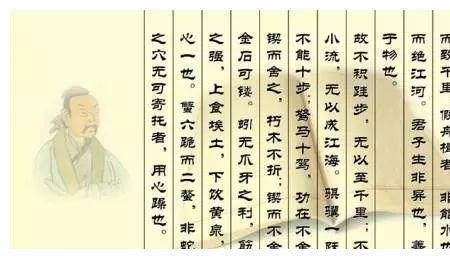 而致千里 假舟楫者 非能水也
而绝江河。君子生非异也，善
于物也。
故不积跬步，无以至千里；不
小流，无以成江海。骐骥一跃
不能十步；驽马十驾，功在不舍
锲而舍之，朽木不折；锲而不舍
金石可镂。蚓无爪牙之利，筋
之强，上食埃土，下饮黄泉，
心一也。蟹六跪而二螯，非蛇
之穴无可寄托者，用心躁也。